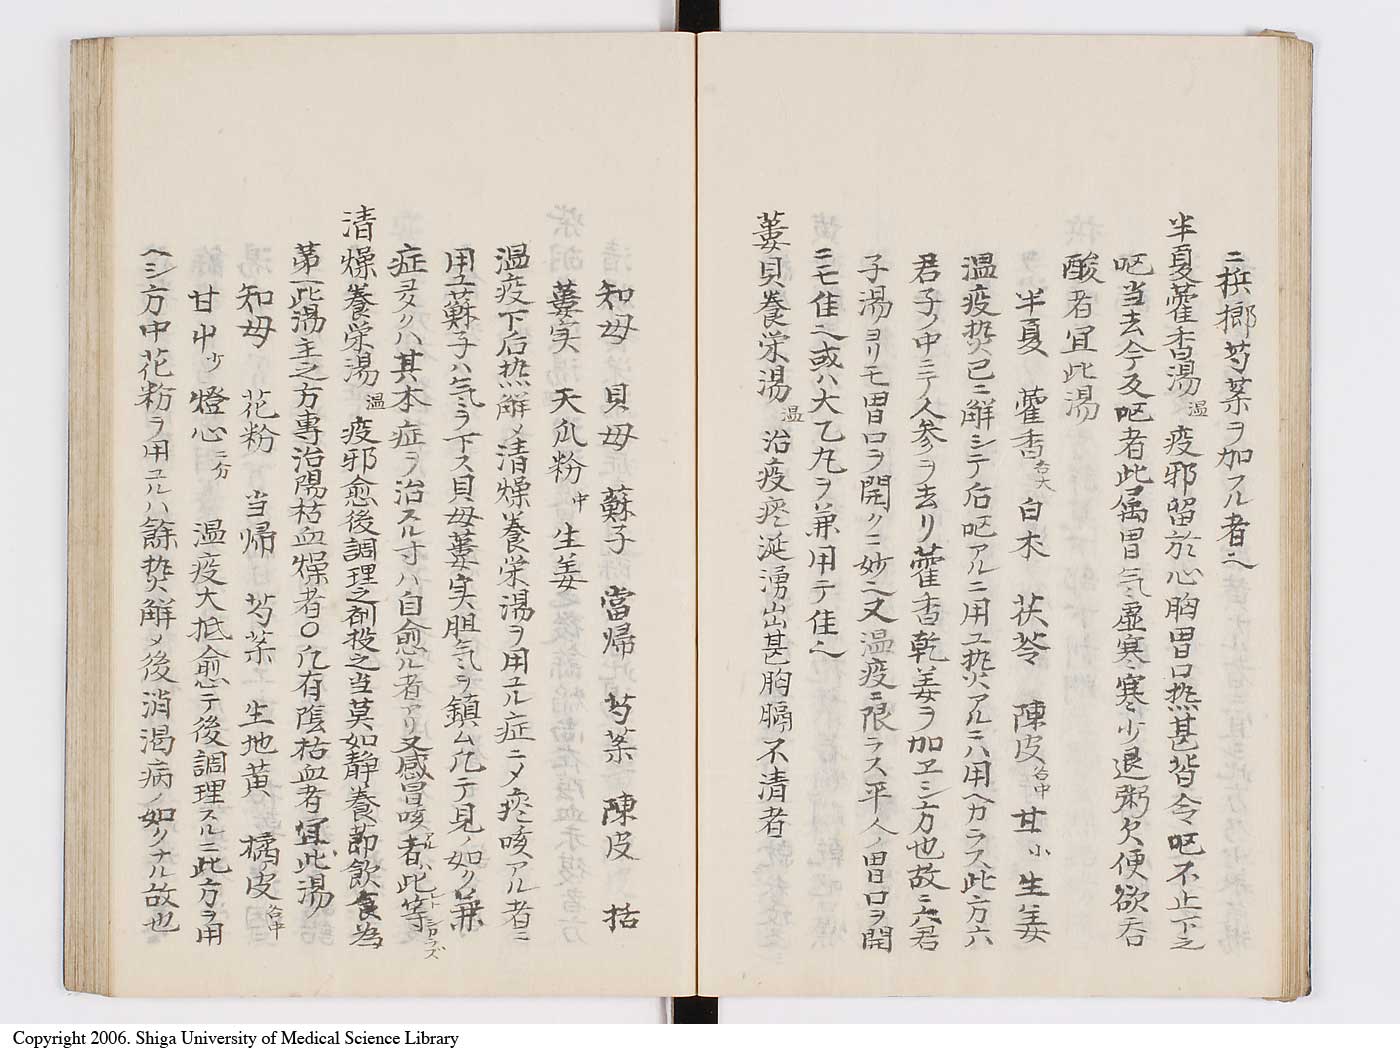 ニ梹榔芍薬ヲ加フル者也
半夏藿香湯 温 疫邪留於心胸胃口热甚皆令呕不止下之
呕当去今反呕者此属胃气虚寒寒少退粥欠便欲吞
酸者宜此湯
半夏 藿香 各大 白朮 茯苓 陳皮 各中 甘 小 生姜
温疫热已ニ解シテ后呕アルニ用ユ热アルニハ用ヘカラス此方六
君子ノ中ニテ人参ヲ去リ藿香乾姜ヲ加ヱシ方也故ニ六君
子湯ヨリモ胃口ヲ開クニ妙也又温疫ニ限ラス平人ノ胃口ヲ開
ニモ佳也或ハ大乙丸ヲ兼用テ佳也
蔞貝養栄湯 温 治疫痰涎湧出甚胸膈不清者
知母 貝母 蘇子 當帰 芍薬 陳皮 括
蔞実 天瓜粉 中 生姜
温疫下后热解メ清燥養栄湯ヲ用ユル症ニメ痰咳アル者ニ
用ユ蘇子ハ気ヲ下ス貝母蔞実胆気ヲ鎮ム凢テ見ノ如ク兼
症ヨクハ其本症ヲ治スル寸ハ自愈ル者アリ又感冒咳者此等
清燥養栄湯 温 疫邪愈後調理之剤投之当莫如静養節飲食為
第一此湯主之方專治陽枯血燥者〇凢有陰枯血者宜此湯
湯 知母 花粉 当帰 芍薬 生地黄 橘皮 各中
甘中 少 燈心 二分 温疫大抵愈テ後調理スルニ此方ヲ用
ヘシ方中花粉ヲ用ユルハ餘热解メ後消渇病ノ如クナル故也
Copyright 2006. Shiga University of Medical Science Library